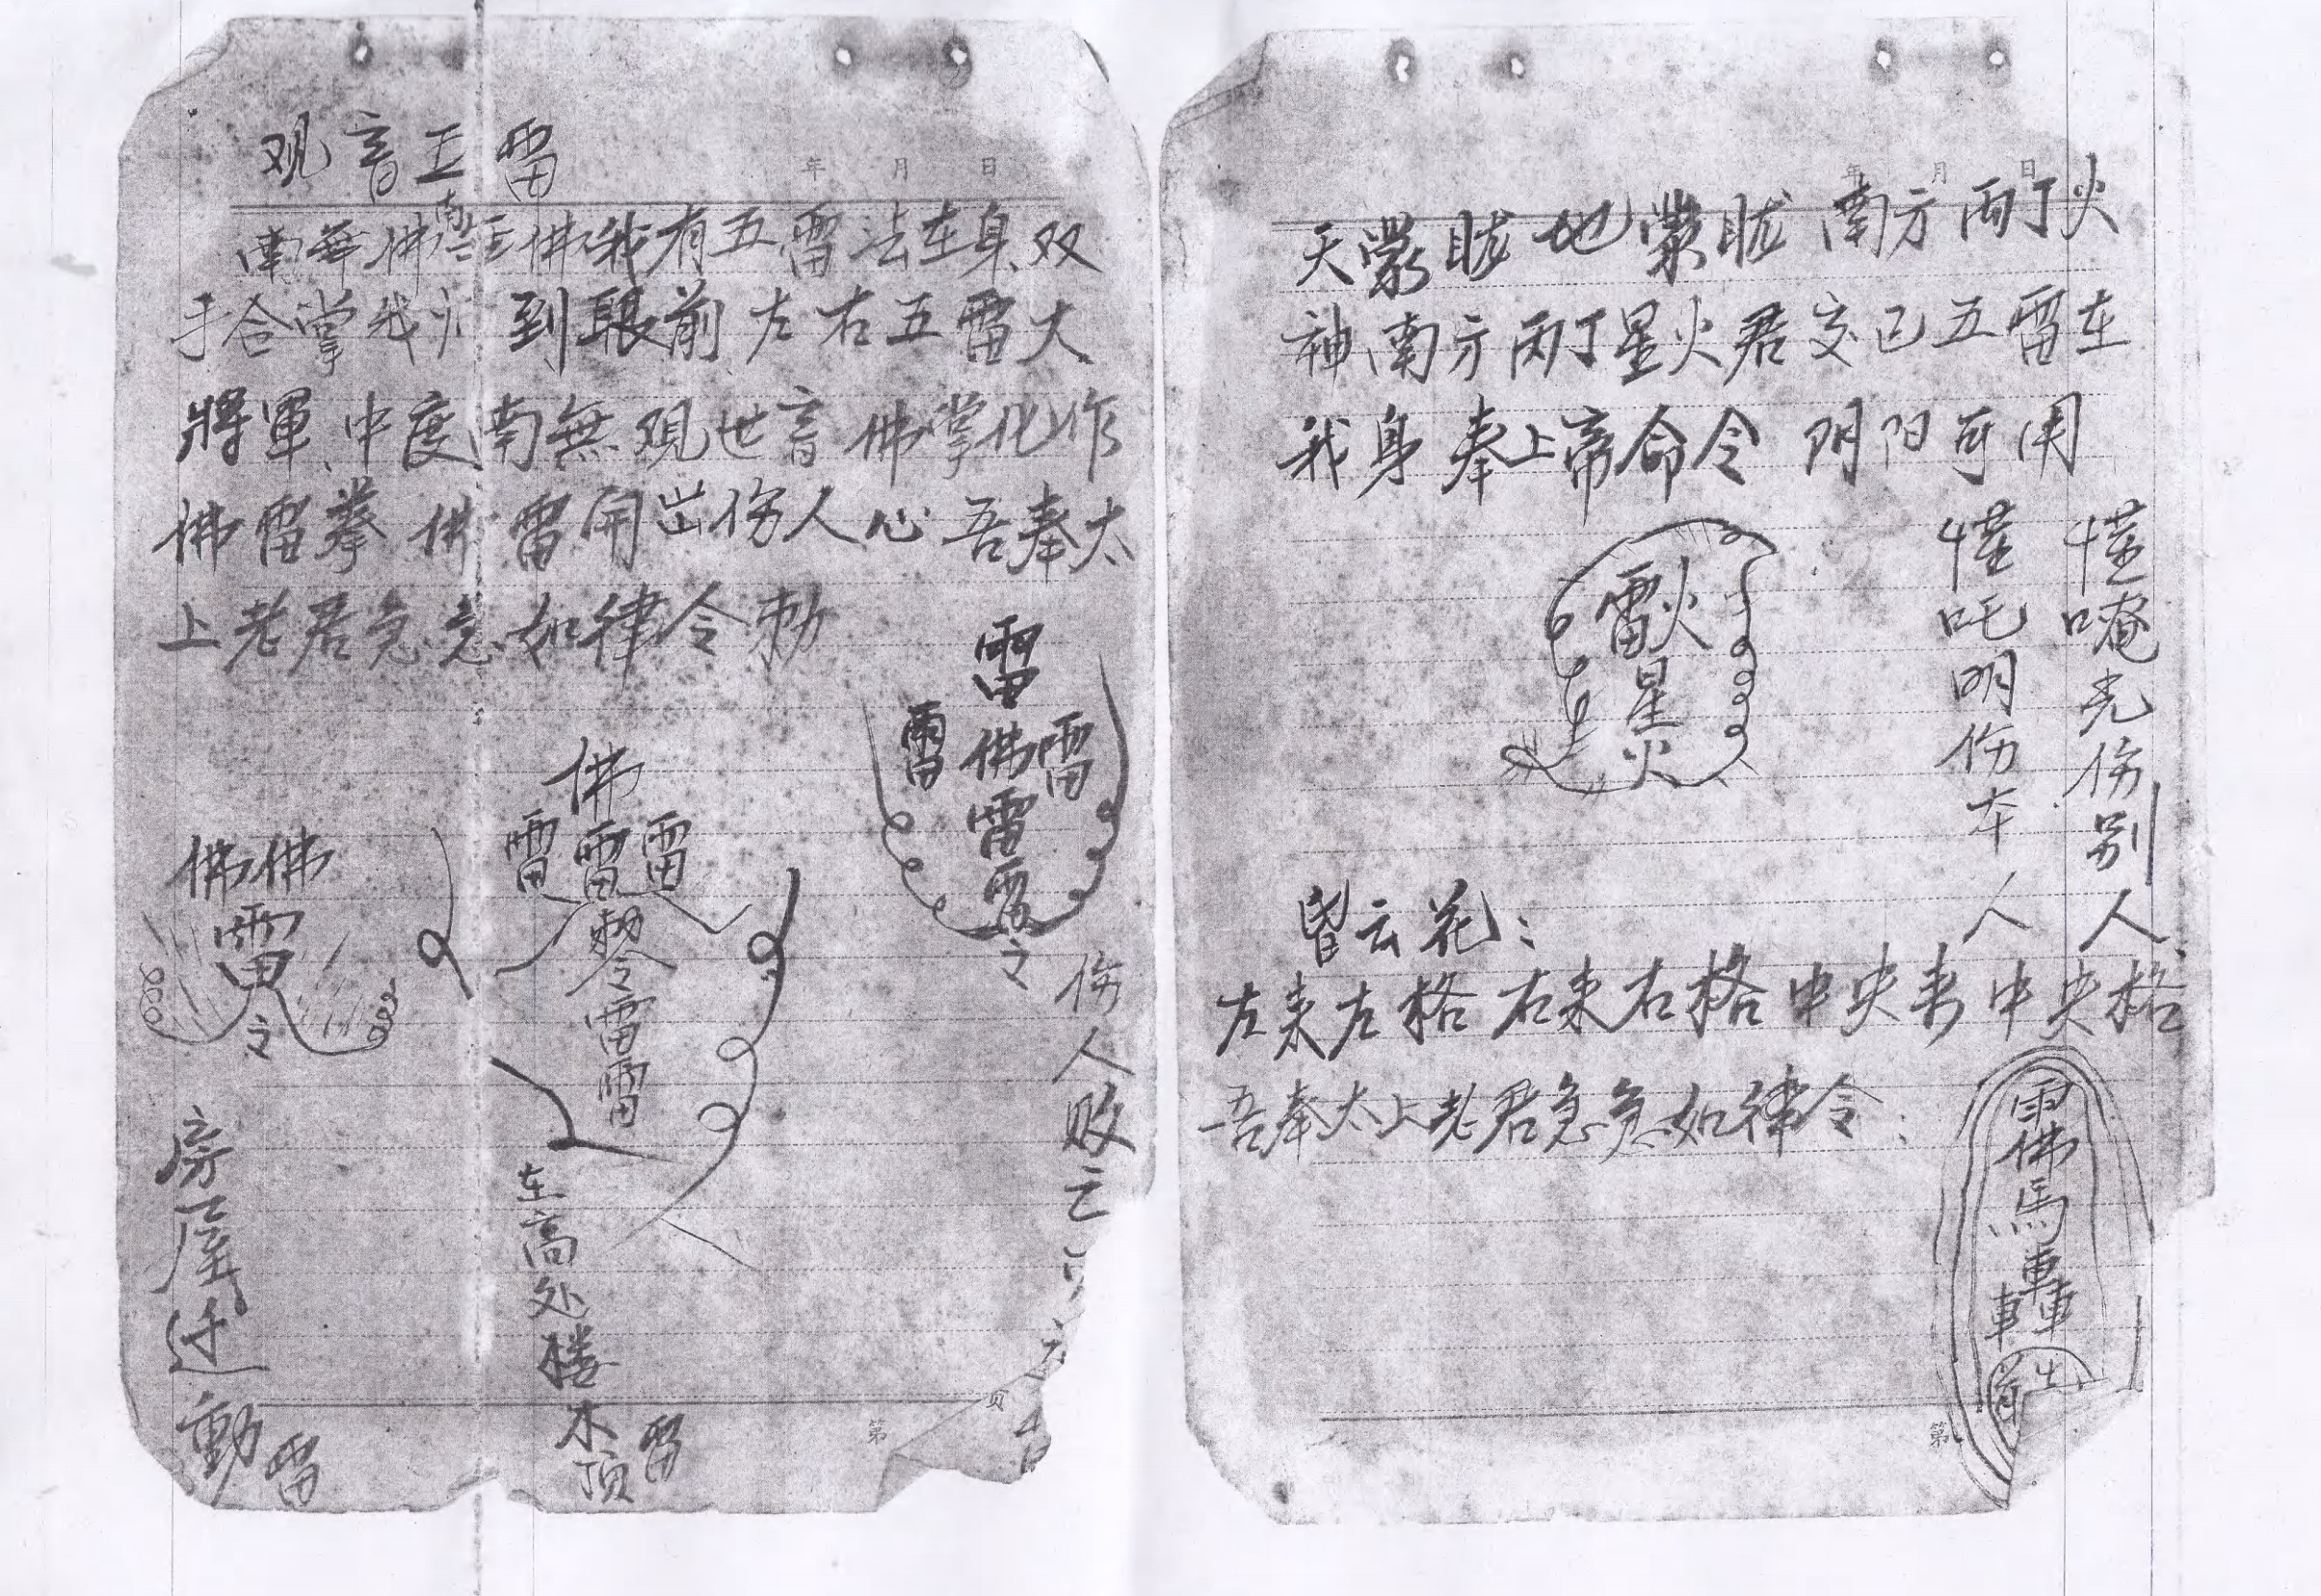 观音五雷
年 月 日
南無佛 南無佛我有五雷法在身双
手合掌我 到眼前左右五雷大
將軍中度南無观世音佛掌化作
佛雷拳佛雷開出伤人心吾奉太
上老君急急如律令勅
雷
雷佛雷
雷
雷
令
伤人败亡
佛
雷雷雷
勅令
雷
雷
在高处楼木顶
雷
佛佛
雷
令
房屋迁動
雷
第 页
年 月 日
天濛眬地蒙眬南方丙丁火
神南方丙丁星火君交己五雷在
我身奉上帝命令阴阳可用
雷火
星
火
憧唵光伤别人
憧吒明伤本人
皆云花:
左来左格右来右格中央来中央格
吾奉太上老君急急如律令:
雷
佛
馬
轟
第